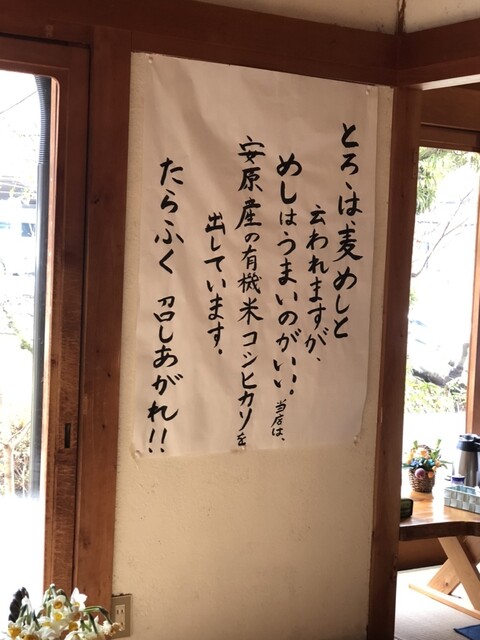 とろゝは、麦めしと
云われますが、
めしはうまいのがいい!
当店は、
安原産の有機米コシヒカリを
出しています。
たらふく 召しあがれ!!